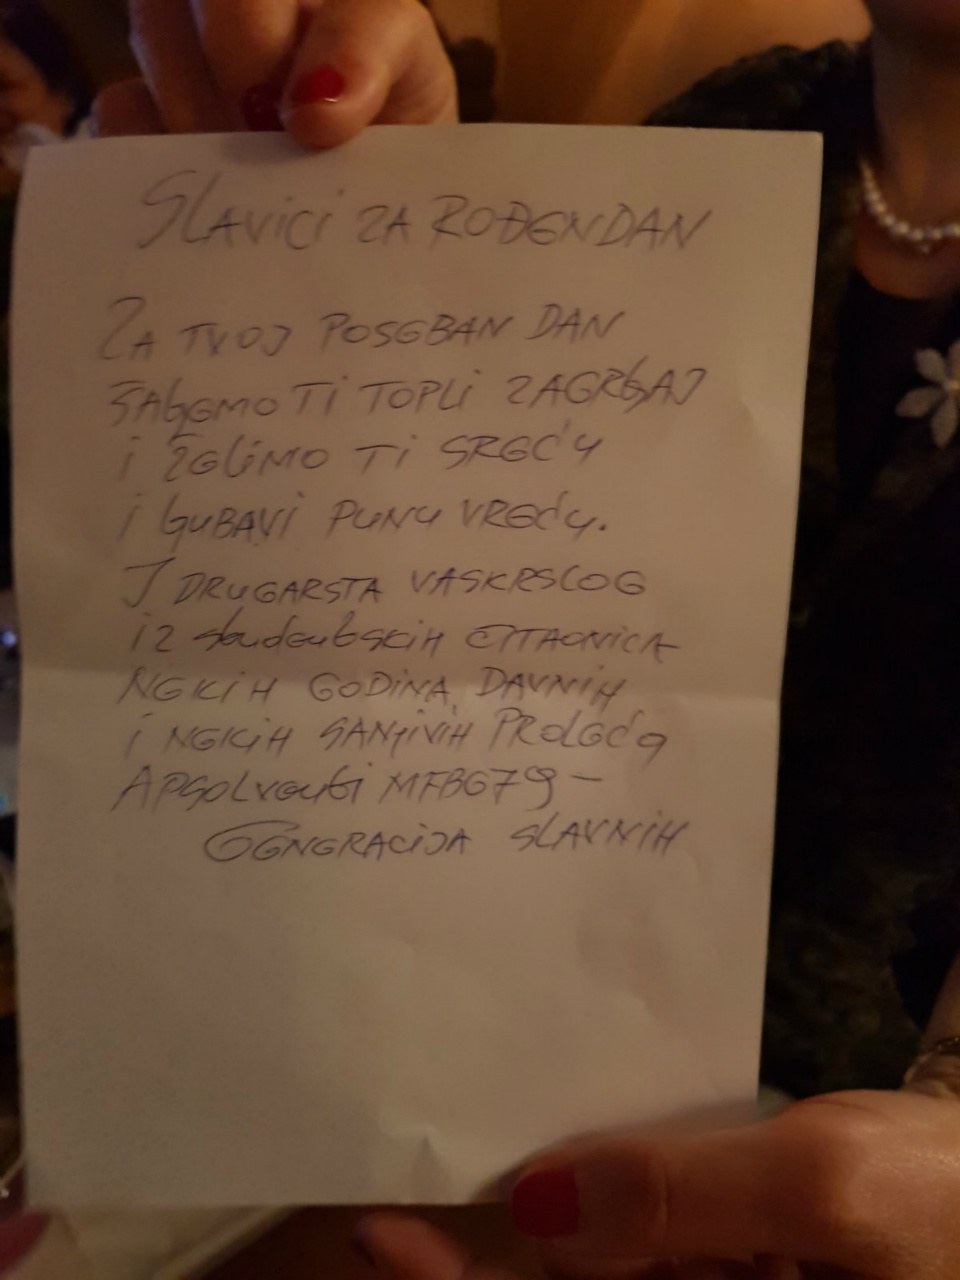 SLAVICI ZA ROĐENDAN
ZA TVOJ POSEBAN DAN
ŠALJEMO TI TOPLI ZAGRLJAJ
i ŽELIMO TI SREĆU
i LJUBAVI PUNU VREĆU.
I DRUGARSTA VASKRSLOG
iz studentskih ČITAONICA
NEKIH GODINA DAVNIH,
i NEKIH SANJIVIH PROLEĆA
APSOLVENTI MFBG79 –
GENERACIJA SLAVNIH